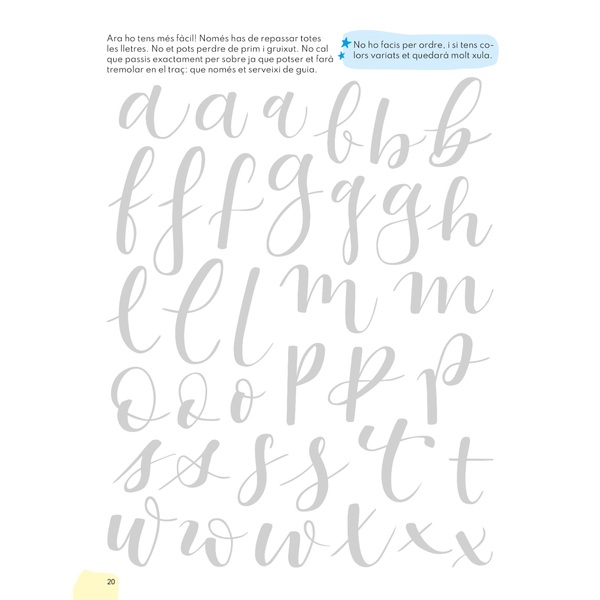 Ara ho tens més fàcil! Només has de repassar totes
les lletres. No et pots perdre de prim i gruixut. No cal
que passis exactament per sobre ja que potser et farà
tremolar en el traç: que només et serveixi de guia.
No ho facis per ordre, i si tens co-
lors variats et quedarà molt xula.
a a a b b b
f f f g g g h
l l l m m
o o o p p p
s s s s t t
w w w x x x
20